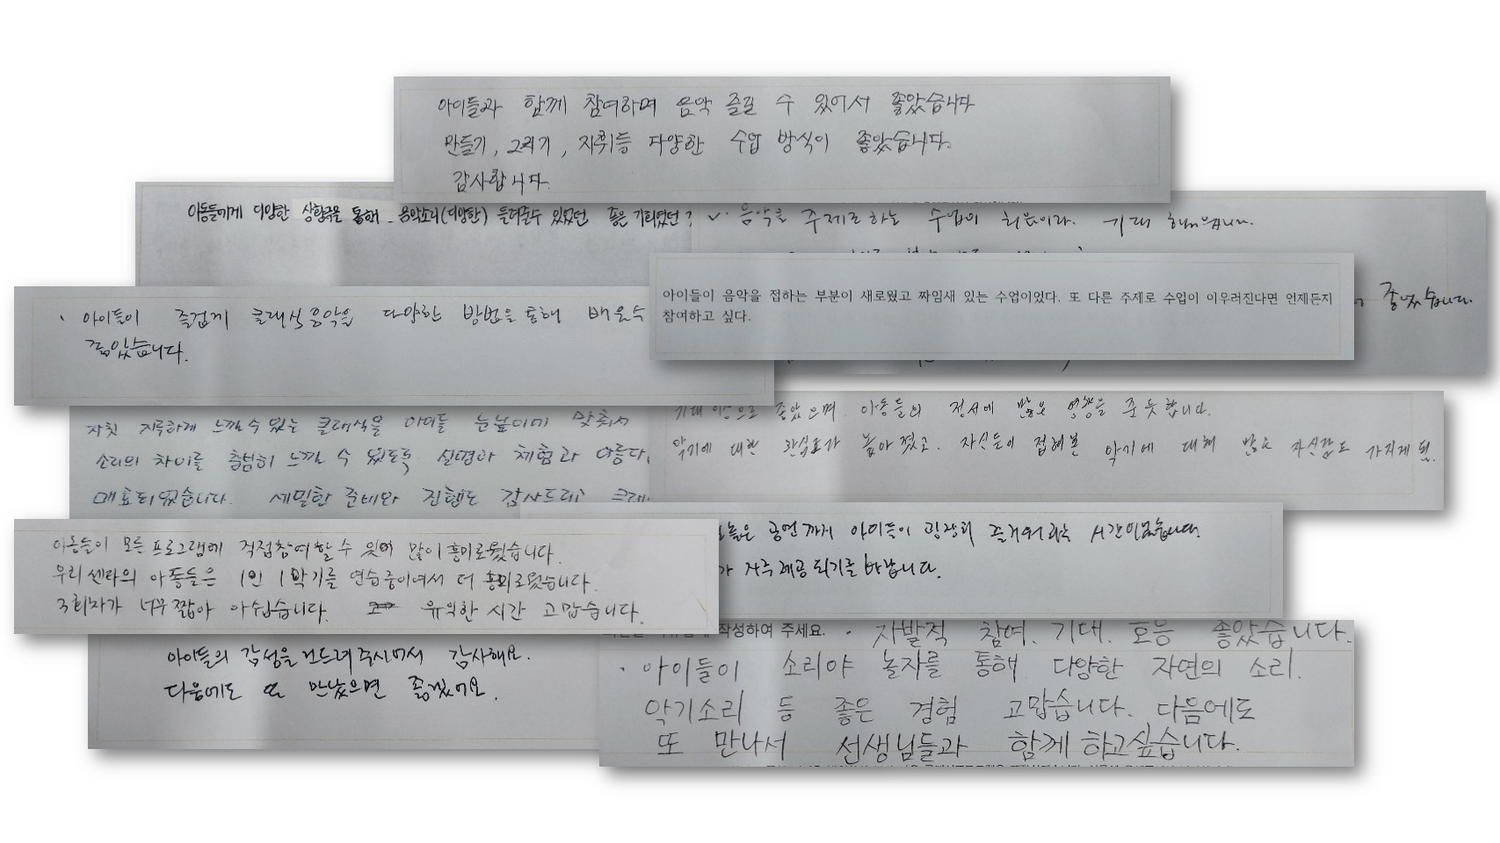 아이들과 함께 참여하며 음악 즐길 수 있어서 좋았습니다
만들기, 그리기, 지휘등 다양한 수업 방식이 좋았습니다.
감사합니다.
아동들에게 다양한 상황극을 통해 음악소리(다양한) 들려줄수 있었던 좋은 기회였던?
음악을 주제로 하는 수업이 처음이라. 기대 했었습니다.
좋았습니다.
아이들이 음악을 접하는 부분이 새로웠고 짜임새 있는 수업이었다. 또 다른 주제로 수업이 이우러진다면 언제든지
참여하고 싶다.
· 아이들이 즐겁게 클래식음악을 다양한 방법을 통해 배울수
좋았습니다.
자칫 지루하게 느낄 수 있는 클래식을 아이들 눈높이에 맞춰서
소리의 차이를 충분히 느낄 수 있도록 설명과 체험과 아름다
매료되었습니다. 세밀한 준비와 진행도 감사드리 클래
기대이상으로 좋았으며 아동들의 정서에 많은 영향을 준 듯 합니다.
악기에 대한 관심도가 높아졌고. 자신들이 접해본 악기에 대해 많은 자신감도 가지게 됨.
공연까지 아이들이 굉장히 즐거워하는 시간이었습니다.
가 자주 제공되기를 바랍니다.
아동들이 모든 프로그램에 직접참여할 수 있어 많이 흥미로웠습니다.
우리 센타의 아동들은 1인 1악기를 연습중이여서 더 흥미로웠습니다.
3회차가 너무 짧아 아쉽습니다. 유익한 시간 고맙습니다.
아이들의 감성을 건드려주시어서 감사해요.
다음에도 또 만났으면 좋겠어요.
작성하여 주세요. · 자발적 참여. 기대. 호응 좋았습니다.
· 아이들이 소리야 놀자를 통해 다양한 자연의 소리.
악기소리 등 좋은 경험 고맙습니다. 다음에도
또 만나서 선생님들과 함께 하고싶습니다.